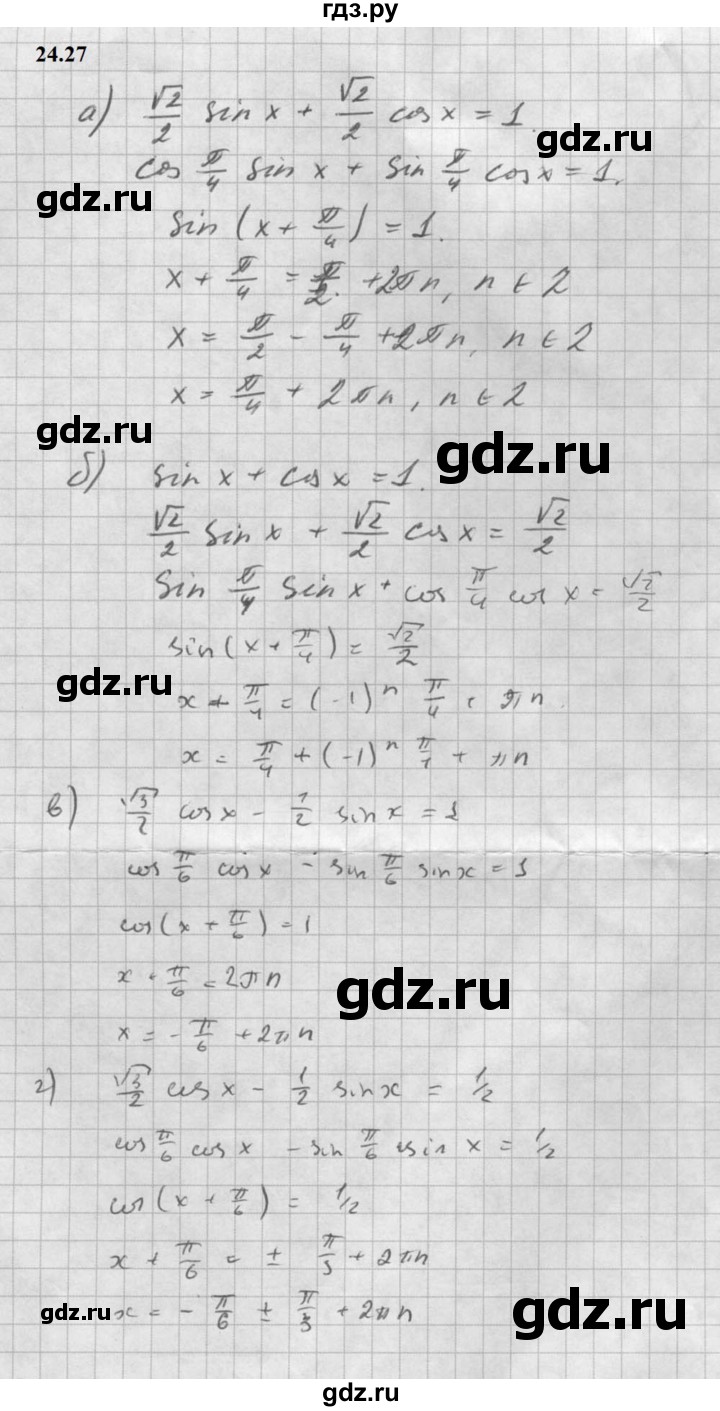 гдз.ру
24.27
а) √2/2 sin x + √2/2 cos x = 1.
gdz.ru
cos π/4 sin x + sin π/4 cos x = 1.
gdz.ru
sin (x + π/4) = 1.
x + π/4 = π/2 + 2πn, n ∈ Z
x = π/2 - π/4 + 2πn, n ∈ Z
x = π/4 + 2πn, n ∈ Z
gdz.ru
gdz.ru
б) sin x + cos x = 1.
√2/2 sin x + √2/2 cos x = √2/2
sin π/4 sin x + cos π/4 cos x = √2/2
sin (x + π/4) = √2/2
gdz.ru
x + π/4 = (-1)ⁿ π/4 + πn.
x = π/4 + (-1)ⁿ π/4 + πn
gdz.ru
в) √3/2 cos x - 1/2 sin x = 1
cos π/6 cos x - sin π/6 sin x = 1
cos (x + π/6) = 1
x + π/6 = 2πn
gdz.ru
x = - π/6 + 2πn
г) √3/2 cos x - 1/2 sin x = 1/2
cos π/6 cos x - sin π/6 sin x = 1/2
cos (x + π/6) = 1/2
x + π/6 = ± π/3 + 2πn
gdz.ru
x = - π/6 ± π/3 + 2πn
gdz.ru
gdz.ru